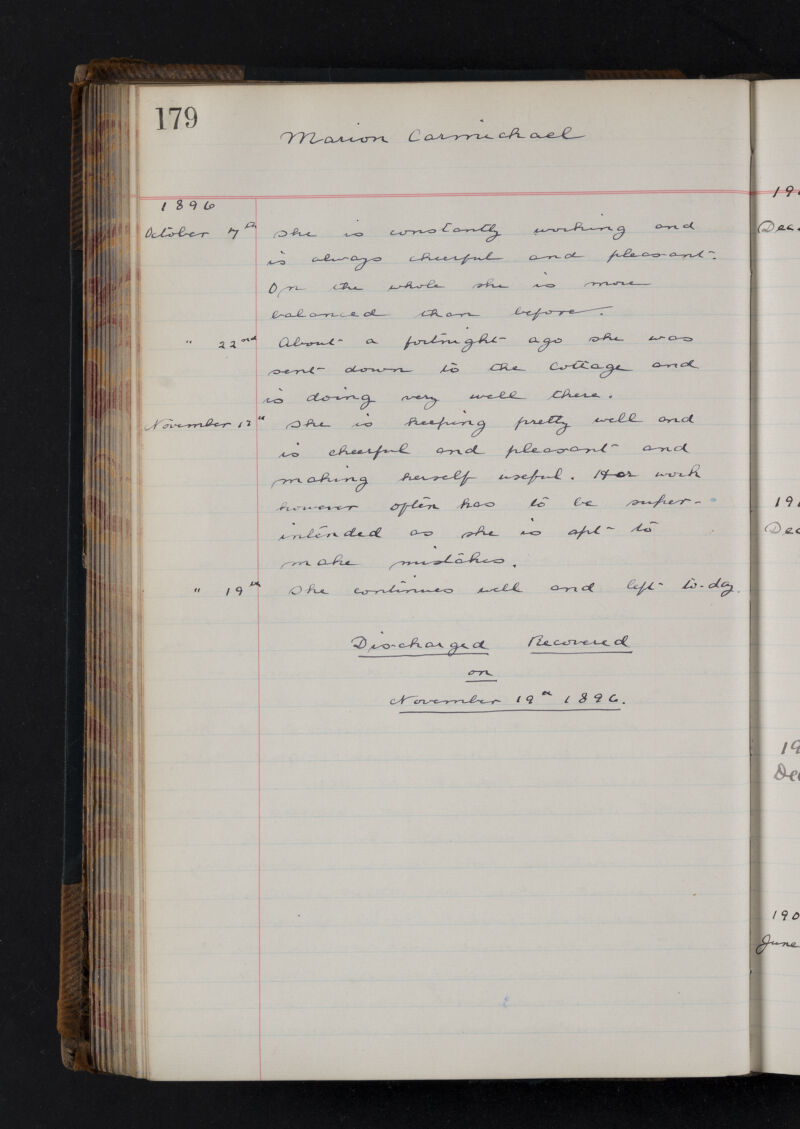 179
Marion Carmichael
1896
October 7th She is constantly working and
is always cheerful and pleasant.
On the whole she is more
balanced than before.
" 22nd About a fortnight ago she was
sent down to the cottage and
is doing very well there.
November 12th She is keeping pretty well and
is cheerful and pleasant and
making herself useful. Her work
however often has to be super-
intended as she is apt to
make mistakes.
" 19th She continues well and left to-day.
Discharged Recovered
on
November 19th 1896.
19
Dec
19
Dec
19
Dec
190
June